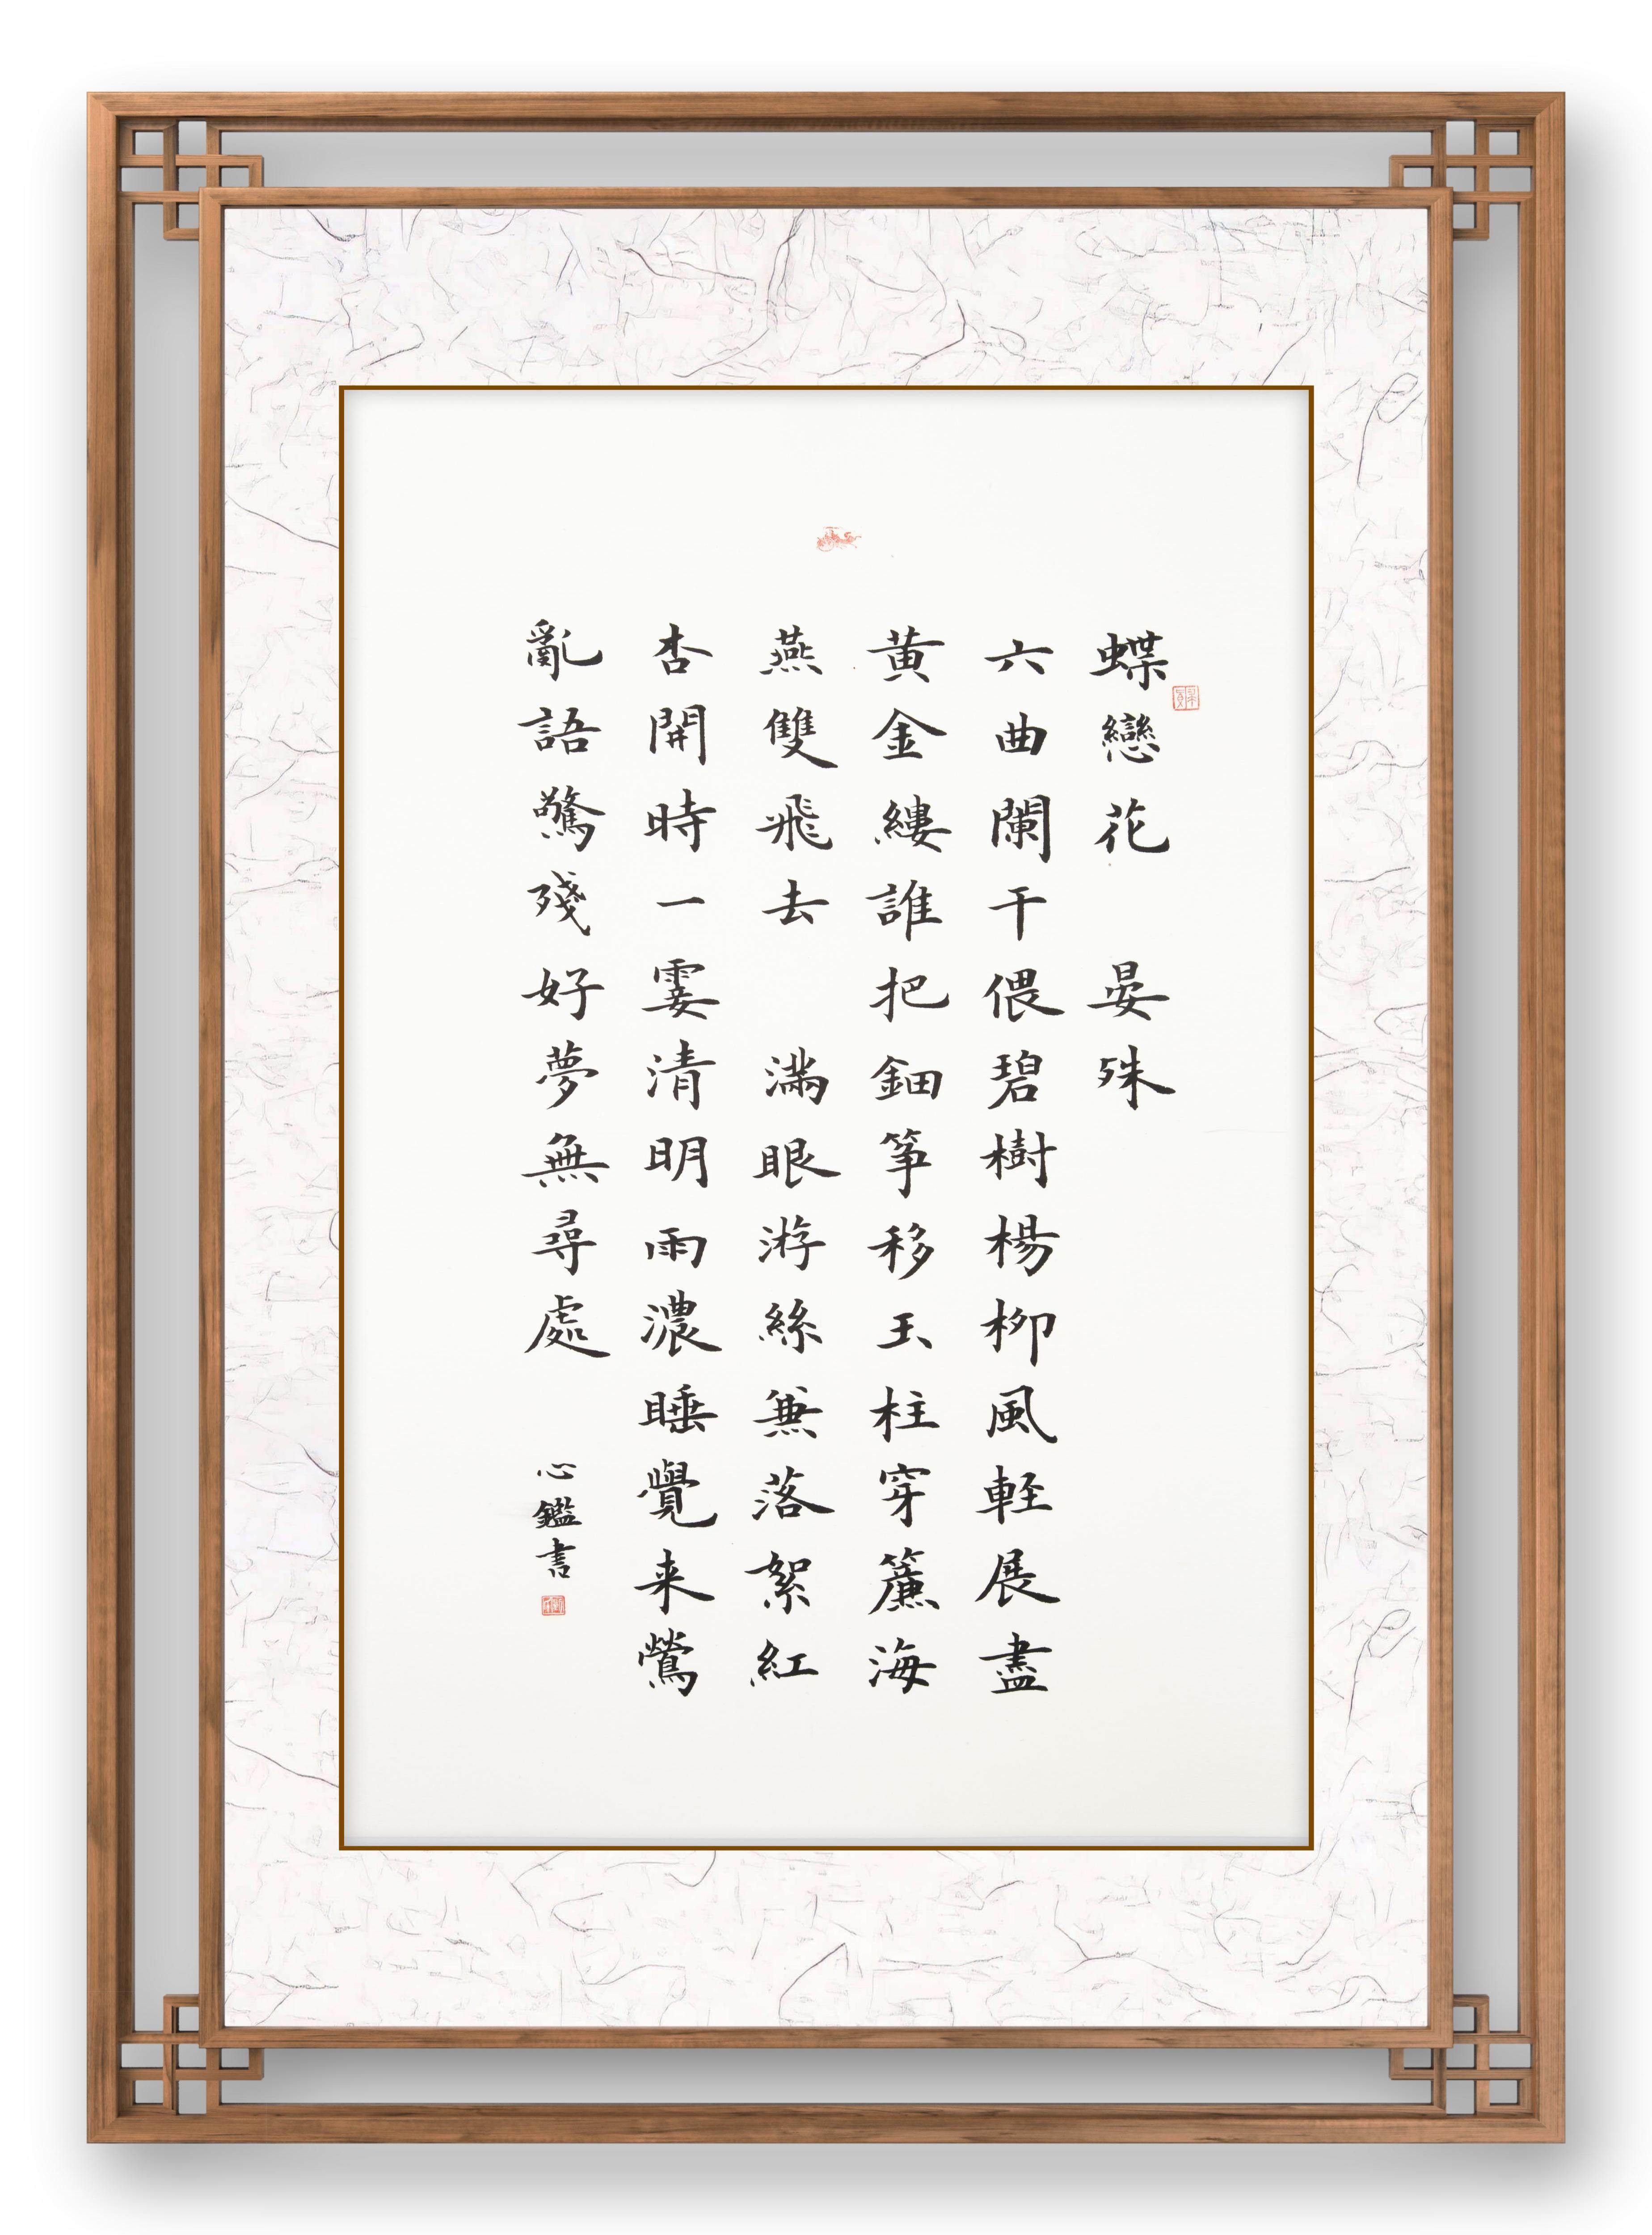 蝶戀花 晏殊
六曲闌干偎碧樹楊柳風軽展盡
黄金縷誰把鈿筝移玉柱穿簾海
燕雙飛去 滿眼游絲兼落絮紅
杏開時一霎清明雨濃睡覺来鶯
亂語驚殘好夢無尋處
心鑑書